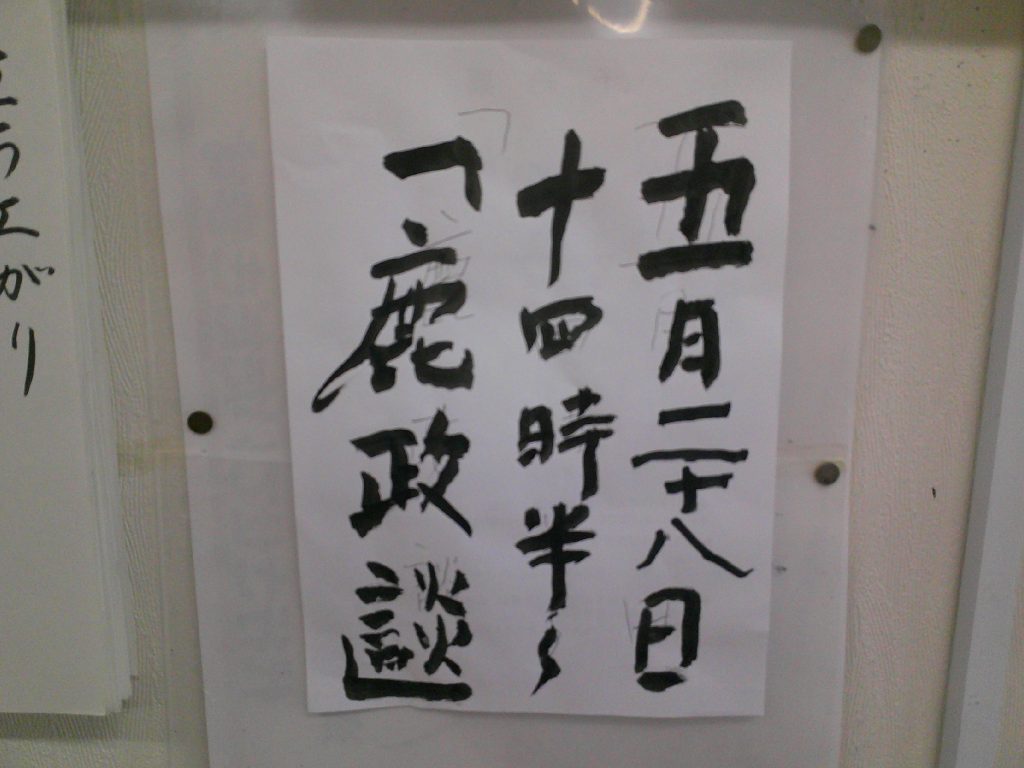 五月二十八日
十四時半~
「鹿政談」
立ち上がり